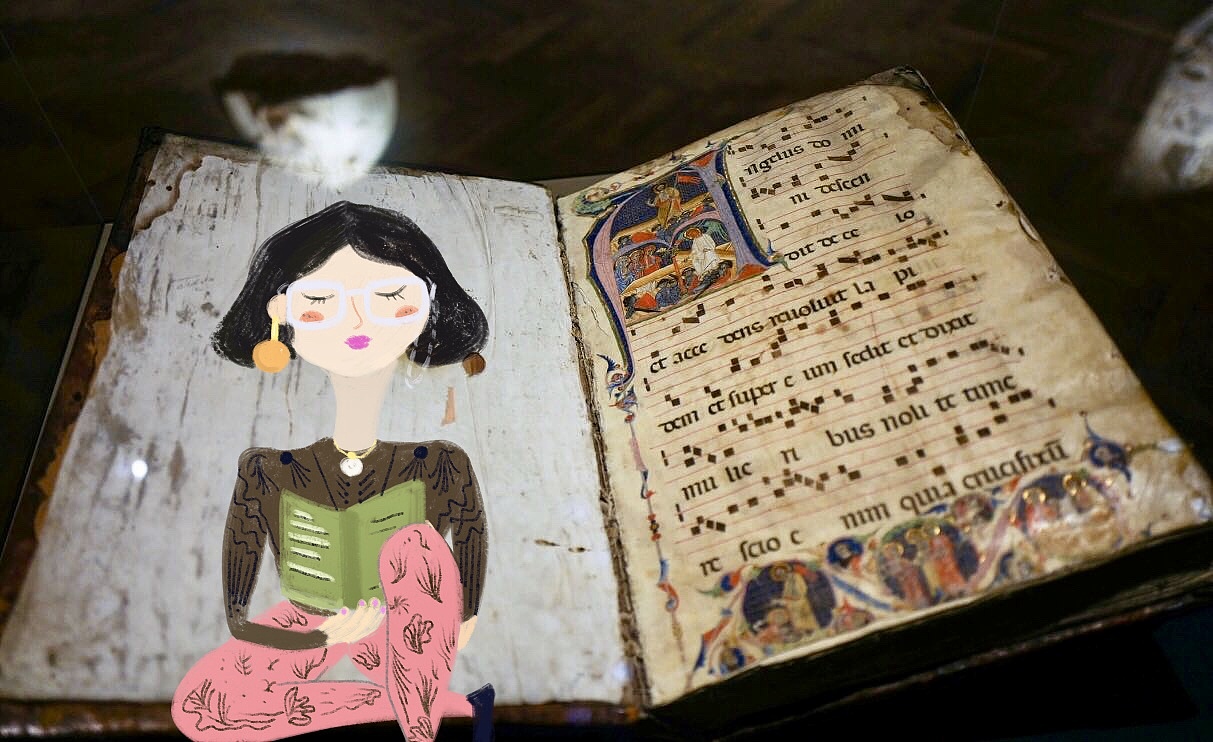 Angelus do mi
ni descen
dit de ce lo
et acce dens revoluit la pi
dem et super e um sedit et dixit
mu lie ri bus noli te time
re scio e nim quia crucifixū